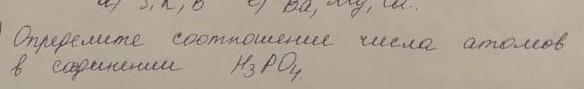 Определите соотношение числа атомов
в соединении H₃PO₄.